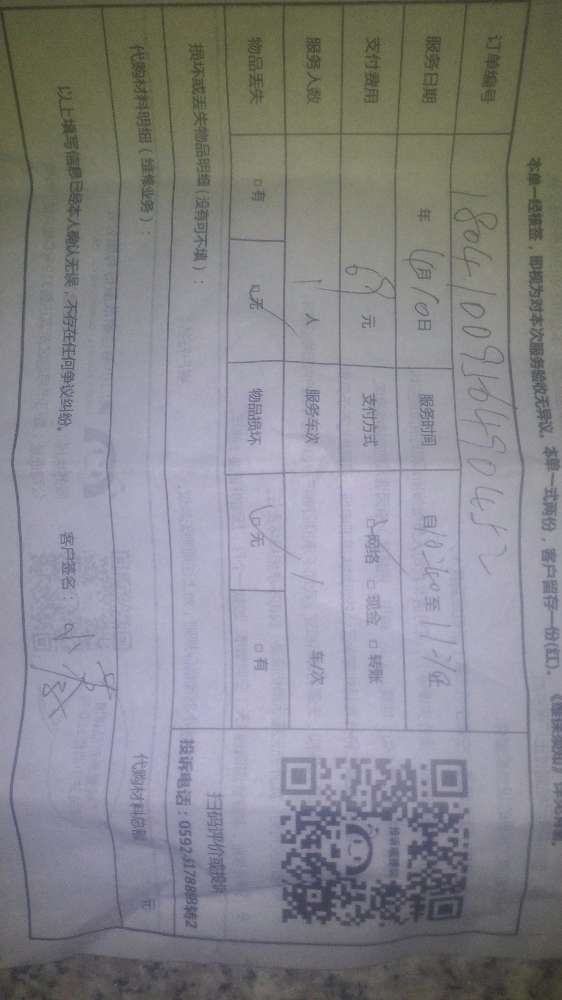 本单一经核签，即视为对本次服务验收无异议。本单一式两份，客户留存一份(红)。
订单编号 1804100910490452
服务日期 年 4月10日 服务时间 自10:40至
支付费用 元 支付方式 网络 □ 现金 □ 转账
服务人数 1人 服务车次 车/次
物品丢失 □ 有 □ 无 物品损坏 □ 无 □ 有
损坏或丢失物品明细（没有可不填）：
扫码评价或投诉
投诉电话：0592
代购材料明细（维修业务）： 代购材料总额 元
以上填写信息已经本人确认无误，不存在任何争议纠纷。 客户签名：